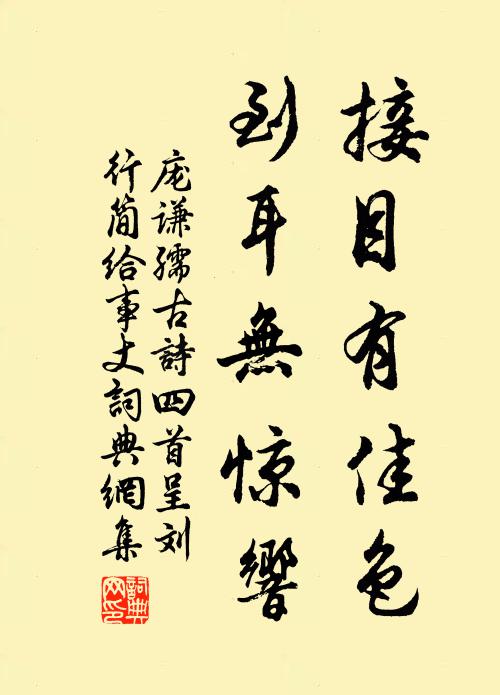 接目有佳色
到耳無惊響
庞谦孺古詩四首呈刘
行簡给事丈詞典網集